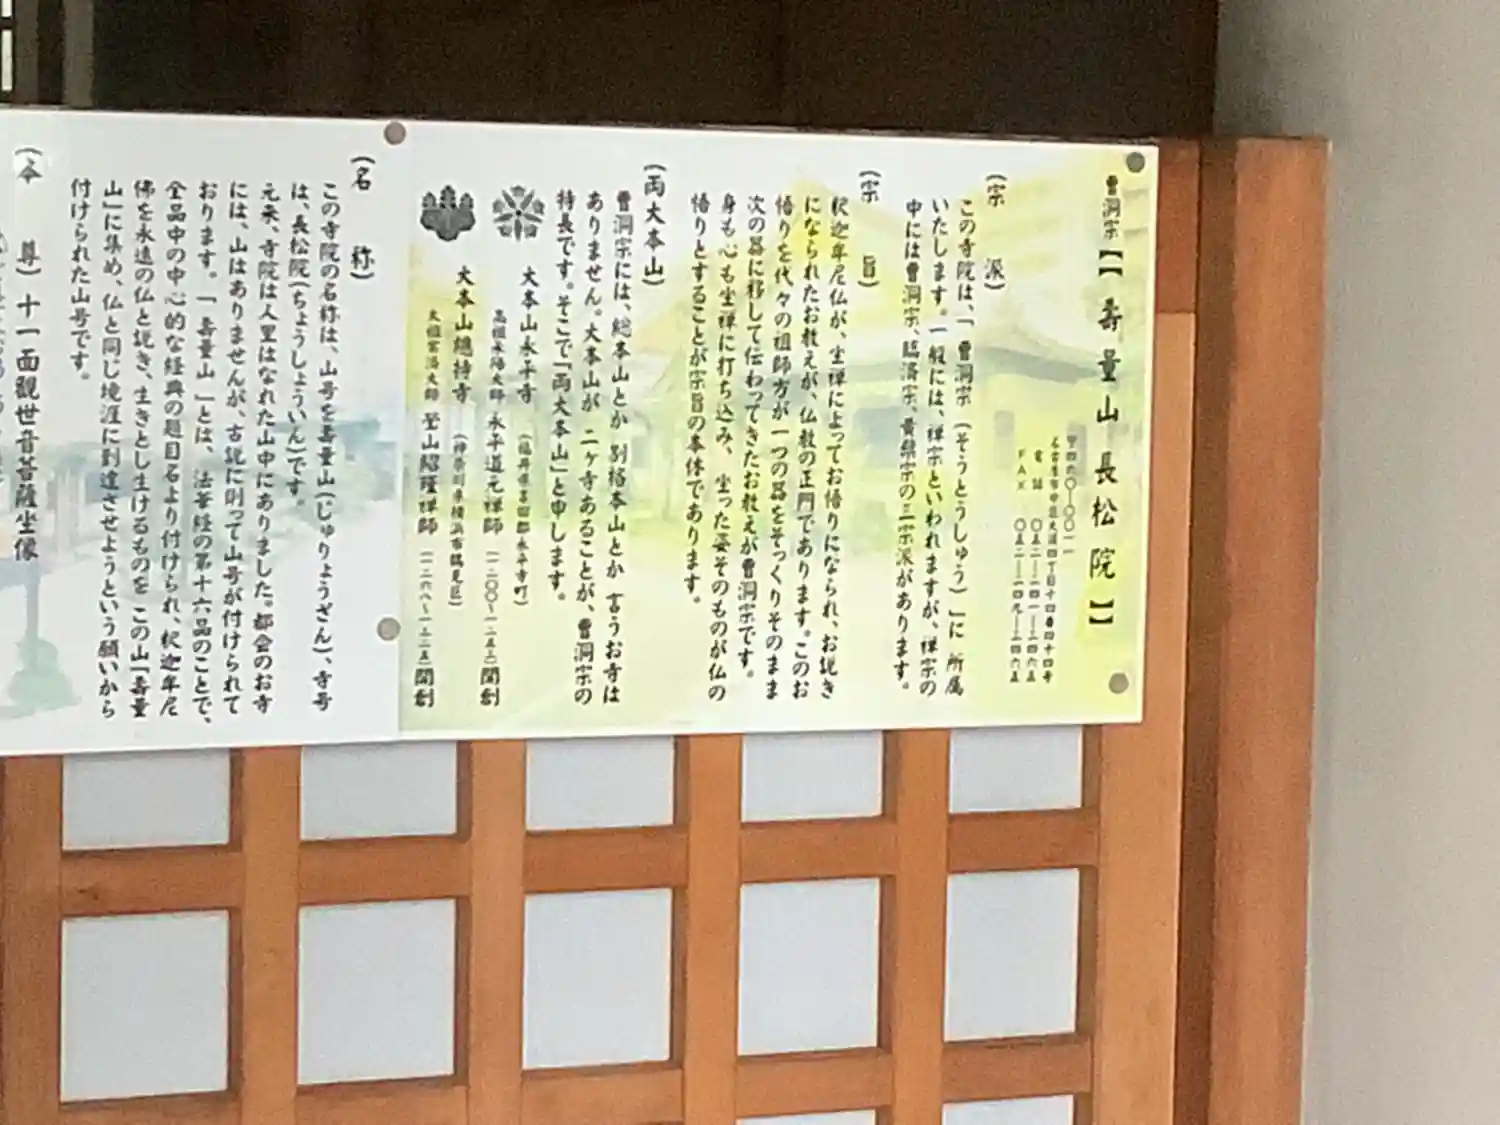 曹洞宗【 】壽量山長松院【 】
〒四六〇―〇〇一一
名古屋市中区大須四丁目十四番四十四号
電話 〇五二―二四一―二四六五
FAX 〇五二―二四九―二四六五
(宗派)
この寺院は、「曹洞宗(そうとうしゅう)」に所属
いたします。一般には、禅宗といわれますが、禅宗の
中には曹洞宗、臨済宗、黄檗宗の三宗派があります。
(宗旨)
釈迦牟尼仏が、坐禅によってお悟りになられ、お説き
になられたお教えが、仏教の正門であります。このお
悟りを代々の祖師方が一つの器をそっくりそのまま
次の器に移して伝わってきたお教えが曹洞宗です。
身も心も坐禅に打ち込み、坐った姿そのものが仏の
悟りとすることが宗旨の本体であります。
(両大本山)
曹洞宗には、総本山とか別格本山とか言うお寺は
ありません。大本山が二ヶ寺あることが、曹洞宗の
特長です。そこで「両大本山」と申します。
大本山永平寺(福井県吉田郡永平寺町)
高祖承陽大師 永平道元禅師(一二〇〇~一二五三)開創
大本山總持寺(神奈川県横浜市鶴見区)
太祖常済大師 瑩山紹瑾禅師(一二六八~一三二五)開創
(名称)
この寺院の名称は、山号を壽量山(じゅりょうざん)、寺号
は、長松院(ちょうしょういん)です。
元来、寺院は人里はなれた山中にありました。都会のお寺
には、山はありませんが、古説に則って山号が付けられて
おります。「壽量山」とは、法華経の第十六品のことで、
全品中の中心的な経典の題目名より付けられ、釈迦牟尼
佛を永遠の仏と説き、生きとし生けるものをこの山「壽量
山」に集め、仏と同じ境涯に到達させようという願いから
付けられた山号です。
(本尊)十一面観世音菩薩坐像